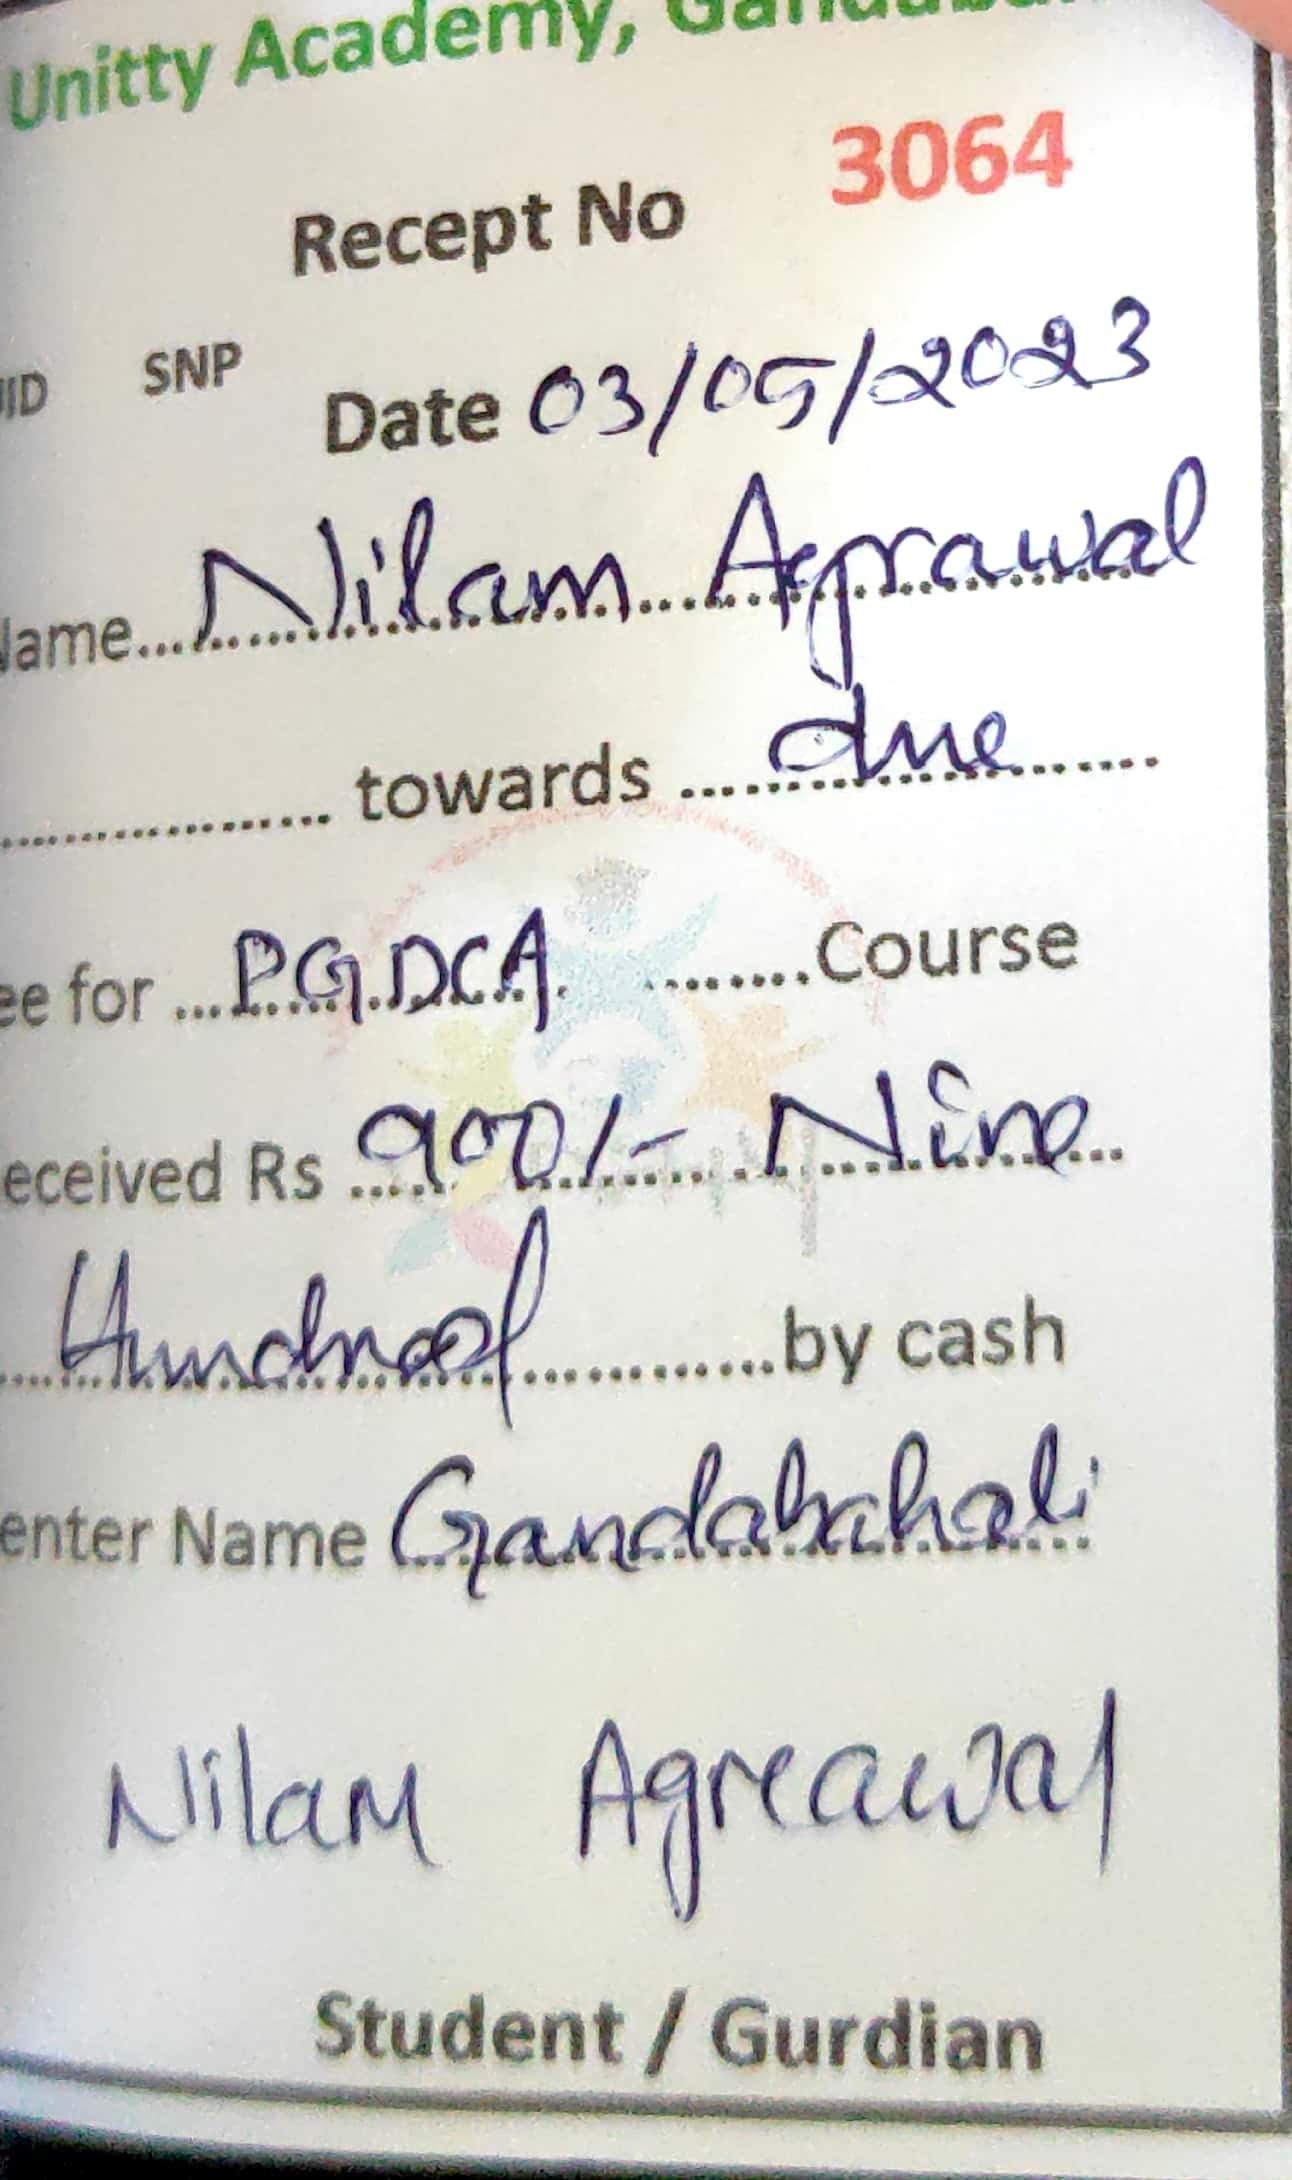 Unitty Academy,
Recept No 3064
SNP
Date 03/05/2023
Name Nilam Agrawal
towards due
for P.G.DCA. Course
eceived Rs 900/- Nine
Hundred by cash
enter Name Gandabahali
Nilam Agreawal
Student / Gurdian